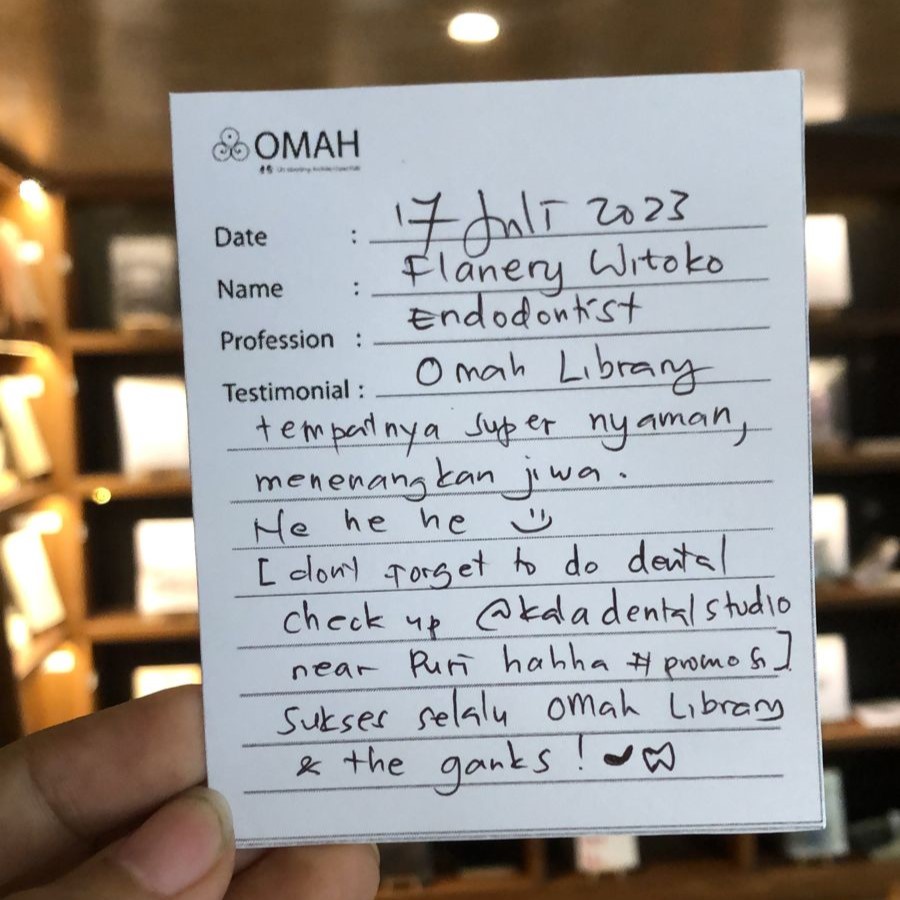 OMAH
Date : 17 Juli 2023
Name : Flanery Witoko
Profession : Endodontist
Testimonial : Omah Library
tempatnya super nyaman,
menenangkan jiwa.
He he he
[dont forget to do dental
check up @kaladentalstudio
near Puri hahha # promosi]
Sukses selalu Omah Library
& the ganks!